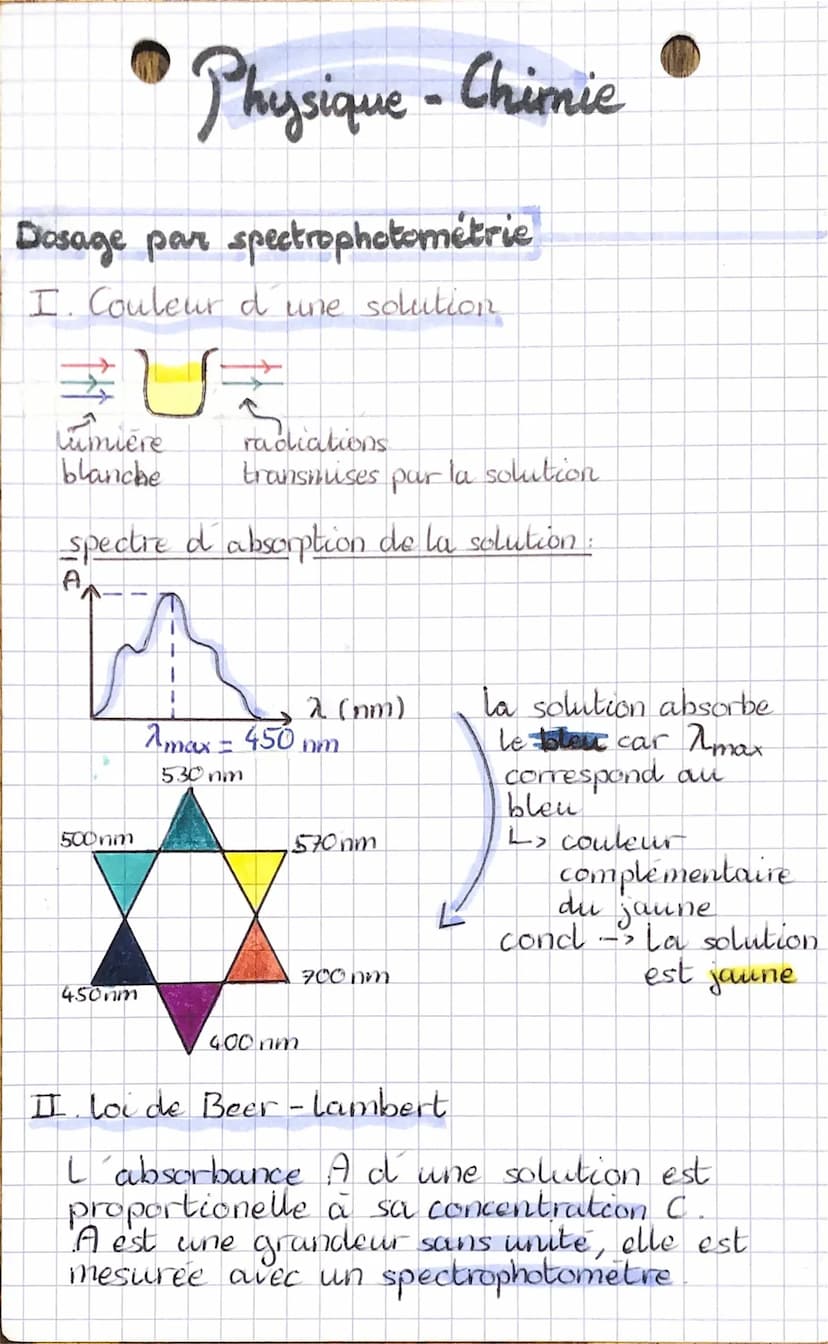 Physique - Chimie
Dosage par spectrophotométrie
I. Couleur d'une solution
lumière
blanche
radiations
transmises par la solution
spectre d'absorption de la solution :
A
λ (nm)
λmax = 450 nm
la solution absorbe
le bleu car λmax
correspond au
bleu
↳ couleur
complémentaire
du jaune
concl -> La solution
est jaune
530 nm
500nm
570nm
450nm
700nm
400nm
II. Loi de Beer - Lambert
L'absorbance A d'une solution est
proportionelle à sa concentration C.
A est une grandeur sans unité, elle est
mesurée avec un spectrophotomètre.